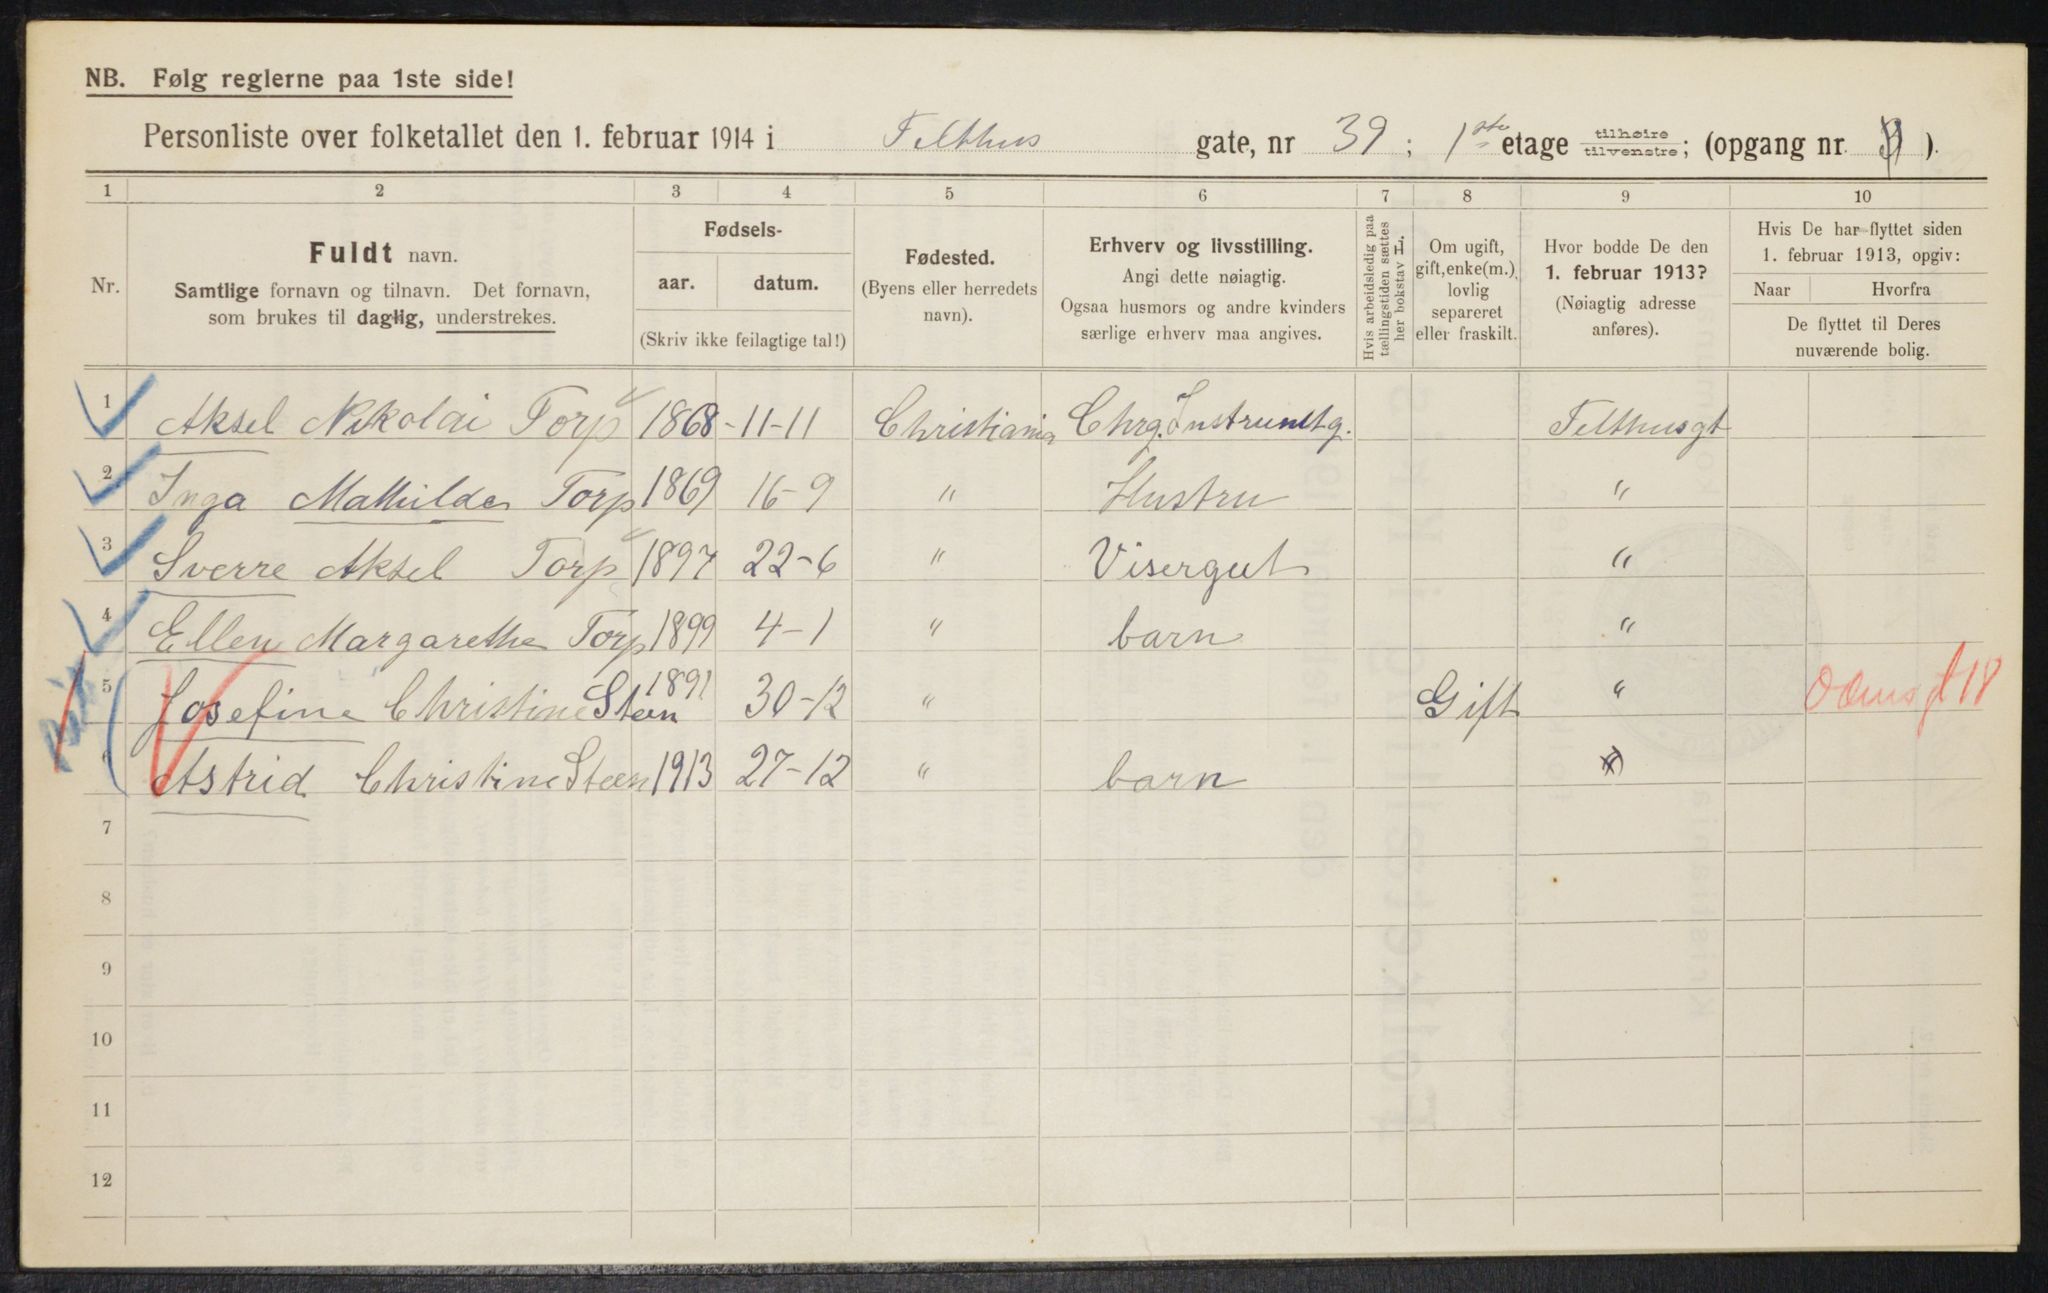 NB. Følg reglerne paa 1ste side!
Personliste over folketallet den 1. februar 1914 i Felthus gate, nr 39; 1ste etage tilhøire/tilvenstre; (opgang nr. ).
1 2 3 4 5 6 7 8 9 10
Nr.
Fuldt navn.
Samtlige fornavn og tilnavn. Det fornavn,
som brukes til daglig, understrekes.
Fødsels-
aar. datum.
(Skriv ikke feilagtige tal!)
Fødested.
(Byens eller herredets
navn).
Erhverv og livsstilling.
Angi dette nøiagtig.
Ogsaa husmors og andre kvinders
særlige erhverv maa angives.
Hvis arbeidsledig paa
tællingstiden sættes
her bokstav L.
Om ugift,
gift, enke(m.),
lovlig
separeret
eller fraskilt.
Hvor bodde De den
1. februar 1913?
(Nøiagtig adresse
anføres).
Hvis De har flyttet siden
1. februar 1913, opgiv:
Naar Hvorfra
De flyttet til Deres
nuværende bolig.
1 Aksel Nikolai Torp 1868 - 11-11 Christiania Chrg. Instrumtg. Felthusgt
2 Inga Mathilde Torp 1869 16-9 " Hustru "
3 Sverre Aksel Torp 1897 22-6 " Visergut "
4 Ellen Margarethe Torp 1899 4-1 " barn "
5 Josefine Christine Steen 1891 30-12 " Gift "
6 Astrid Christine Steen 1913 27-12 " barn
7
8
9
10
11
12